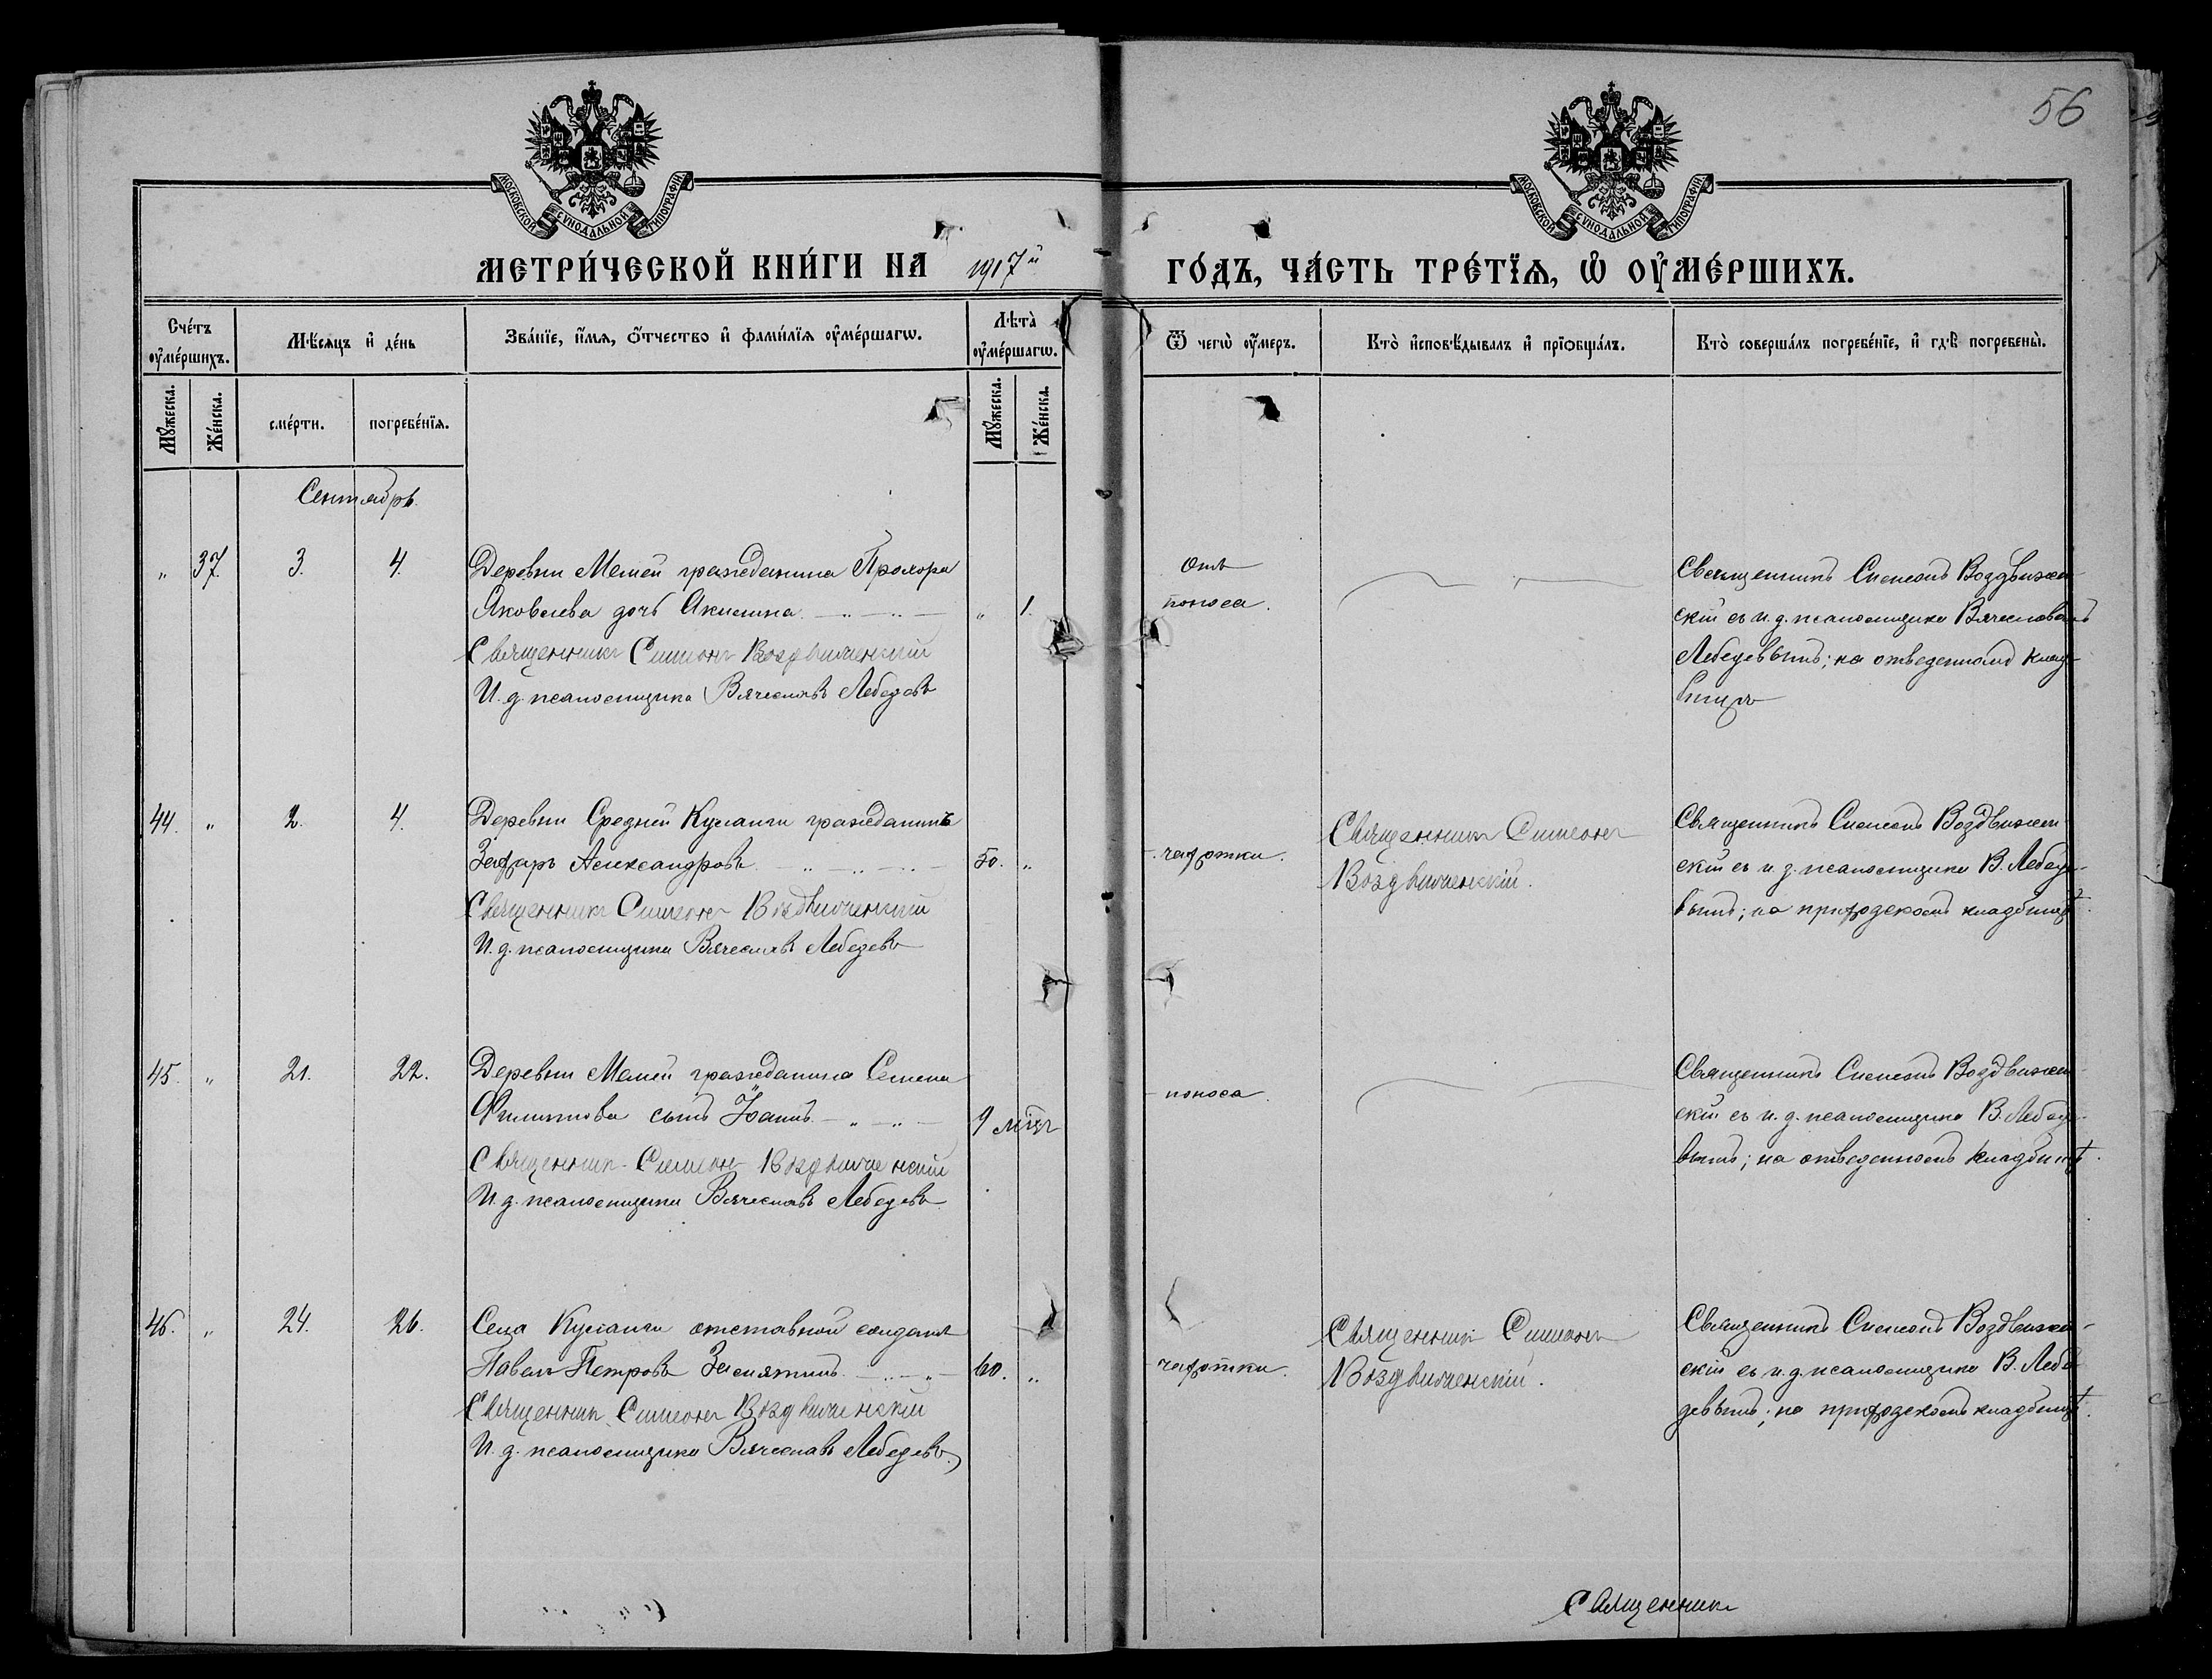 56
МОСКОВСКОЙ СѴНОДАЛЬНОЙ ТИПОГРАФІИ
МОСКОВСКОЙ СѴНОДАЛЬНОЙ ТИПОГРАФІИ
МЕТРИ́ЧЕСКОЙ КНИ́ГИ НА 1917й ГО́ДЪ, ЧА́СТЬ ТРЕ́ТЇѦ, Ѡ҆ ОУ҆МЕ́РШИХЪ.
Сче́тъ оу҆ме́ршихъ.
Мѣ́сѧцъ и҆ де́нь
Зва́нїе, и҆́мѧ, ѻ҆́тчество и҆ фами́лїѧ оу҆ме́ршагѡ.
Лѣта̀ оу҆ме́ршагѡ.
Ѿ чегѡ̀ оу҆́меръ.
Кто̀ и҆сповѣ́дывалъ и҆ прїѡбща́лъ.
Кто̀ соверша́лъ погребе́нїе, и҆ гдѣ̀ погребены̀.
Мꙋ́жеска.
Же́нска.
сме́рти.
погребе́нїѧ.
Мꙋ́жеска.
Же́нска.
Сентябрь.
„ 37. 3. 4. Деревни Мамей гражданина Прохора
Яковлева дочь Акилина „ 1.
Священникъ Симеонъ Воздвиженскій
И. д. псаломщика Вячеславъ Лебедевъ
Отъ
поноса.
Священникъ Симеонъ Воздвижен-
скій съ и. д. псаломщика Вячеславомъ
Лебедевымъ; на отведенномъ клад-
бищѣ
44. „ 2. 4. Деревни Средней Кушанги гражданинъ
Захаръ Александровъ 50. „
Священникъ Симеонъ Воздвиженскій
И. д. псаломщика Вячеславъ Лебедевъ
чахотки.
Священникъ Симеонъ
Воздвиженскій.
Священникъ Симеонъ Воздвижен-
скій съ и. д. псаломщика В. Лебеде-
вымъ; на приходскомъ кладбищѣ.
45. „ 21. 22. Деревни Мамей гражданина Семена
Филиппова сынъ Іоаннъ 9 мѣсц
Священникъ Симеонъ Воздвиженскій
И. д. псаломщика Вячеславъ Лебедевъ
поноса.
Священникъ Симеонъ Воздвижен-
скій съ и. д. псаломщика В. Лебеде-
вымъ; на отведенномъ кладбищѣ.
46. „ 24. 26. Села Кушанги отставной солдатъ
Павелъ Петровъ 60. „
Священникъ Симеонъ Воздвиженскій
И. д. псаломщика Вячеславъ Лебедевъ.
чахотки.
Священникъ Симеонъ
Воздвиженскій.
Священникъ Симеонъ Воздвижен-
скій съ и. д. псаломщика В. Лебе-
девымъ; на приходскомъ кладбищѣ.
Священникъ